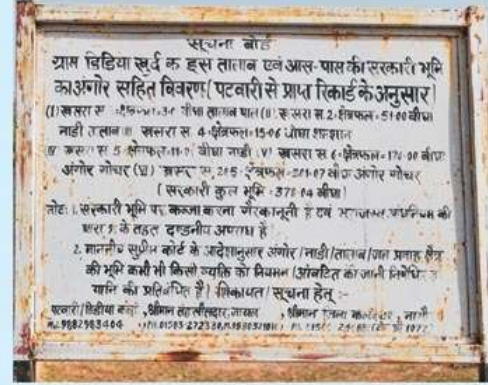 सूचना बोर्ड
ग्राम डिडिया खुर्द क इस तालाब एवं आस-पास की सरकारी भूमि
का अंगोर सहित विवरण (पटवारी से प्राप्त रिकार्ड के अनुसार)
(I) खसरा स बीघा तालाब पाल (II) खसरा स. 2-क्षेत्रफल-51-00 बीघा
नाडी तलाब खसरा स. 4-क्षेत्रफल-15-06 बीघा शमशान
खसरा स 5 क्षेत्रफल बीघा नाडी (V) खसरा स 6-क्षेत्रफल-170-00 बीघा
अंगोर गोचर (VI) खसरा स. 205 क्षेत्रफल अंगोर गोचर
(सरकारी कुल भूमि - 378-04 बीघा)
नोट: 1. सरकारी भूमि पर कब्जा करना गैरकानूनी है एवं की
धारा के तहत दण्डनीय अपराध है
2. माननीय सुप्रीम कोर्ट के आदेशानुसार अंगोर/नाडी/तालाब/जल प्रवाह क्षेत्र
की भूमि कभी भी किसी व्यक्ति को नियमन/आंवटित की जानी
यानि की प्रतिबंधित है। शिकायत/सूचना हेतु :-
पटवारी/डिडीया कलां, श्रीमान तहसीलदार, जायल, श्रीमान जिला कलेक्टर,
9882983404